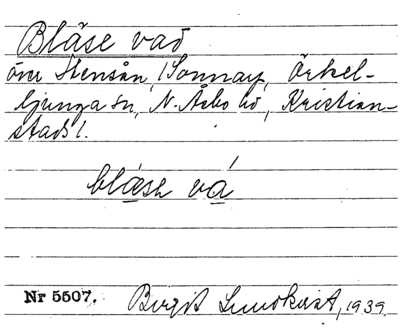 Bläse vad
över Stensån, Sonnarp, Örkel-
ljunga sn, N. Åsbo hd, Kristian-
stads l.
blæsɩ vá
Nr 5507. Birgit Lundkvist, 1939.